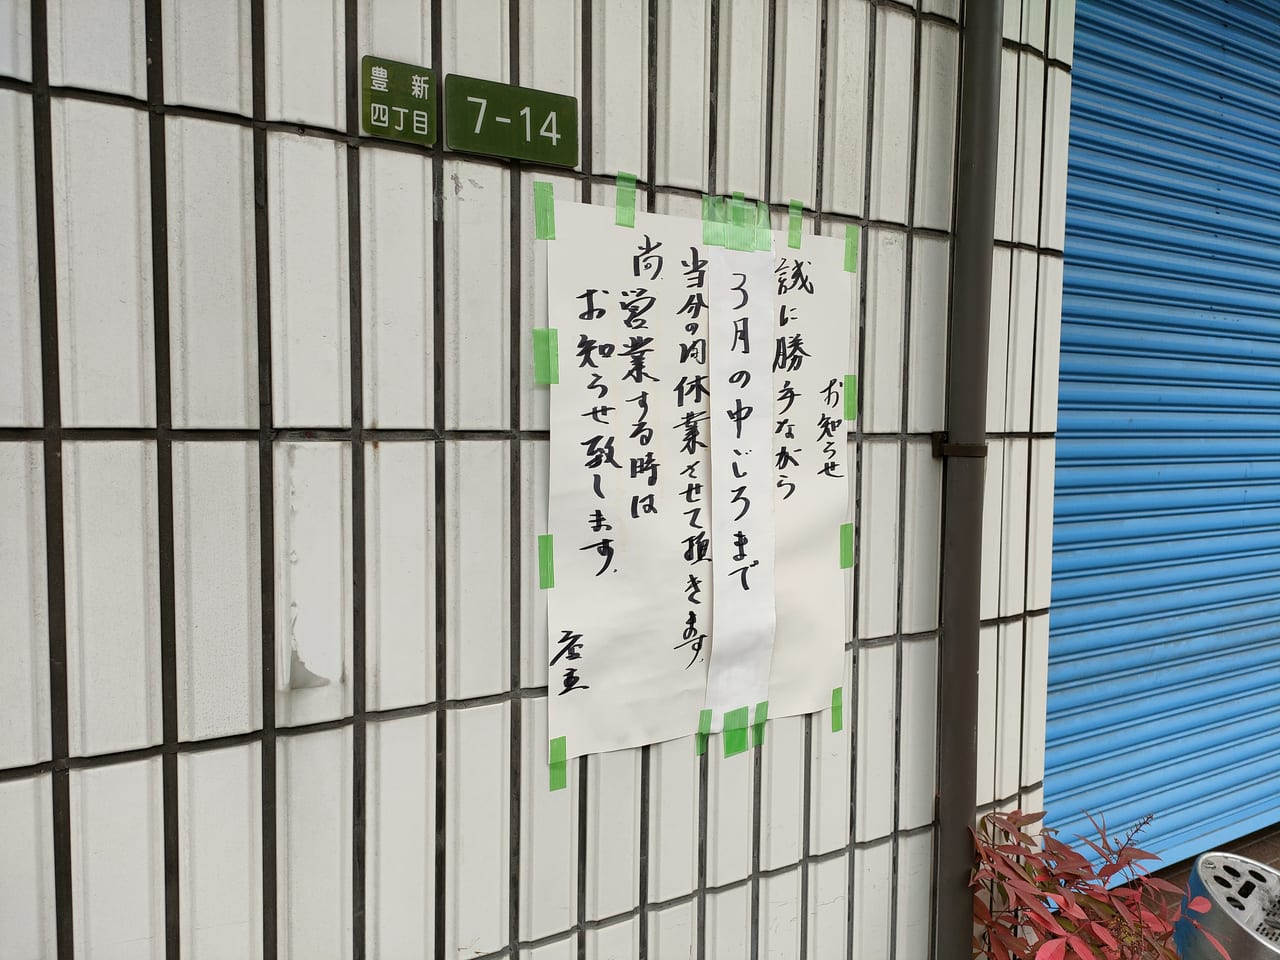 豊新
四丁目
7-14
お知らせ
誠に勝手ながら
3月の中ごろまで
当分の間休業させて頂きます。
尚営業する時は
お知らせ致します。
店主